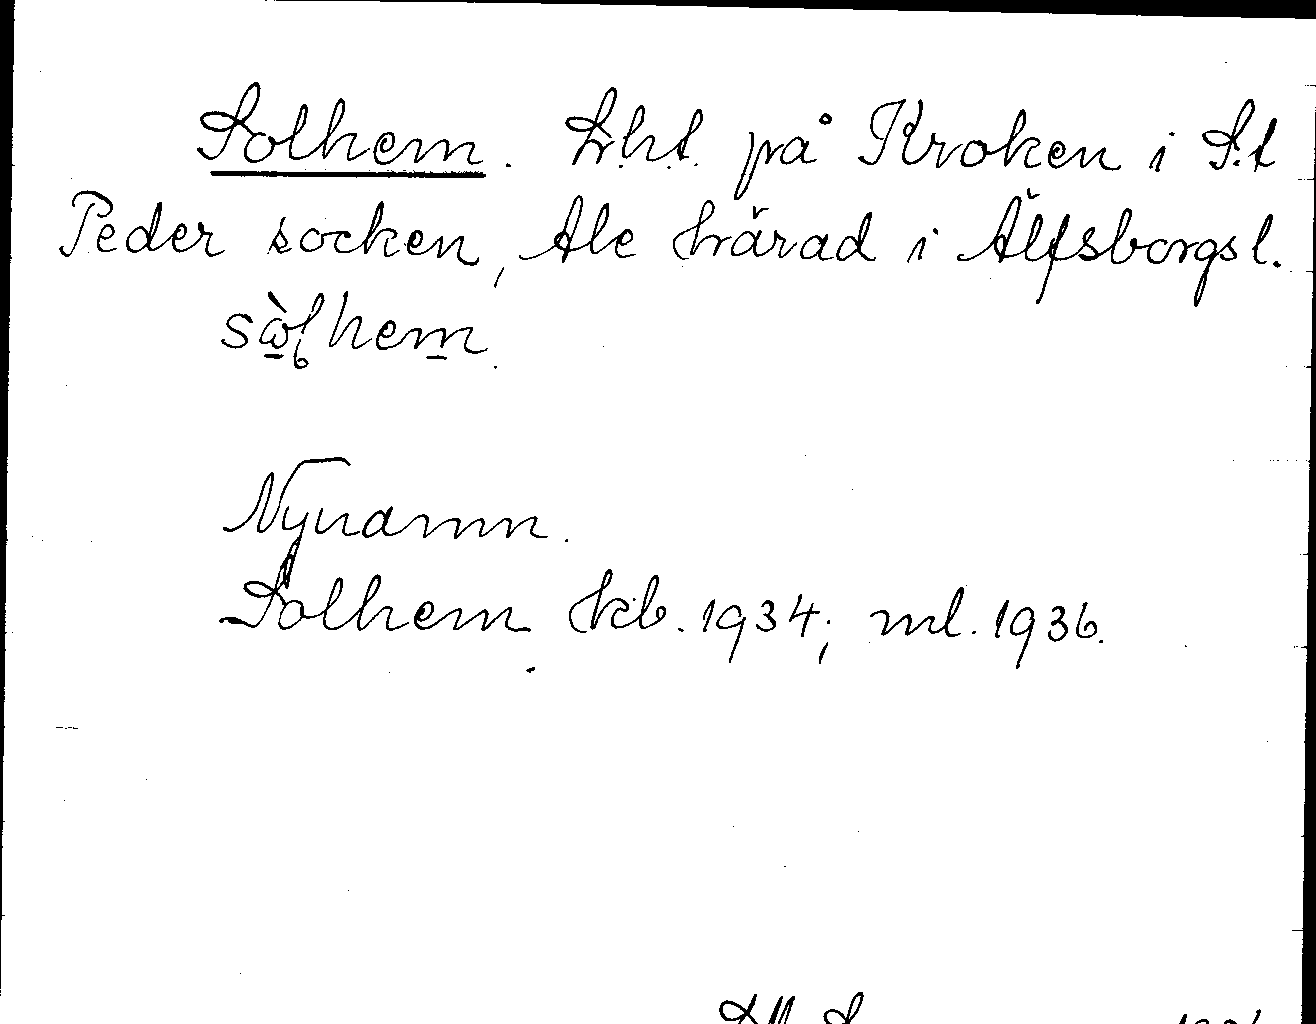 Solhem. Lht. på Kroken i S:t
Peder socken, Ale härad i Älfsborgsl.
sòlhem.
Nynamn.
Solhem hkb. 1934; ml. 1936.